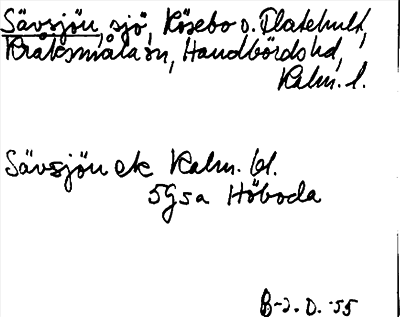 Sävsjön, sjö, Kösebo o. Flatehult,
Kråksmåla sn, Handbörds hd,
Kalm. l.
Sävsjön ek Kalm. bl.
5G5a Höboda
B-2. D. -55